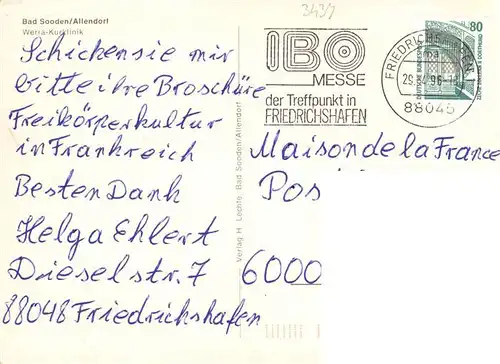 Bad Sooden/Allendorf
Werra-Kurklinik
3431
IBO
MESSE
der Treffpunkt in
FRIEDRICHSHAFEN
88045
80
DEUTSCHE BUNDESPOST
ZECHE ZOLLERN II DORTMUND
Schicken sie mir
bitte ihre Broschüre
Freikörperkultur
in Frankreich
Besten Dank
Helga Ehlert
Dieselstr. 7
88048 Friedrichshafen
Verlag H. Lechte Bad Sooden/Allendorf
Maison de la France
Pos
6000